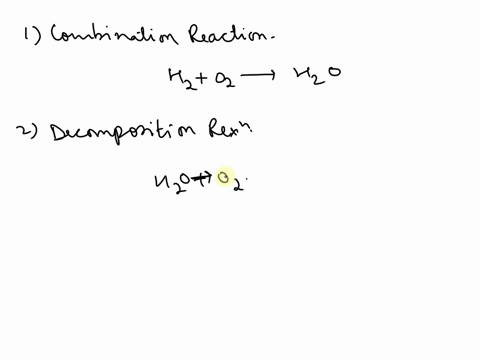 1) Combination Reaction.
H₂ + O₂ → H₂O
2) Decomposition Rexⁿ.
H₂O → O₂.